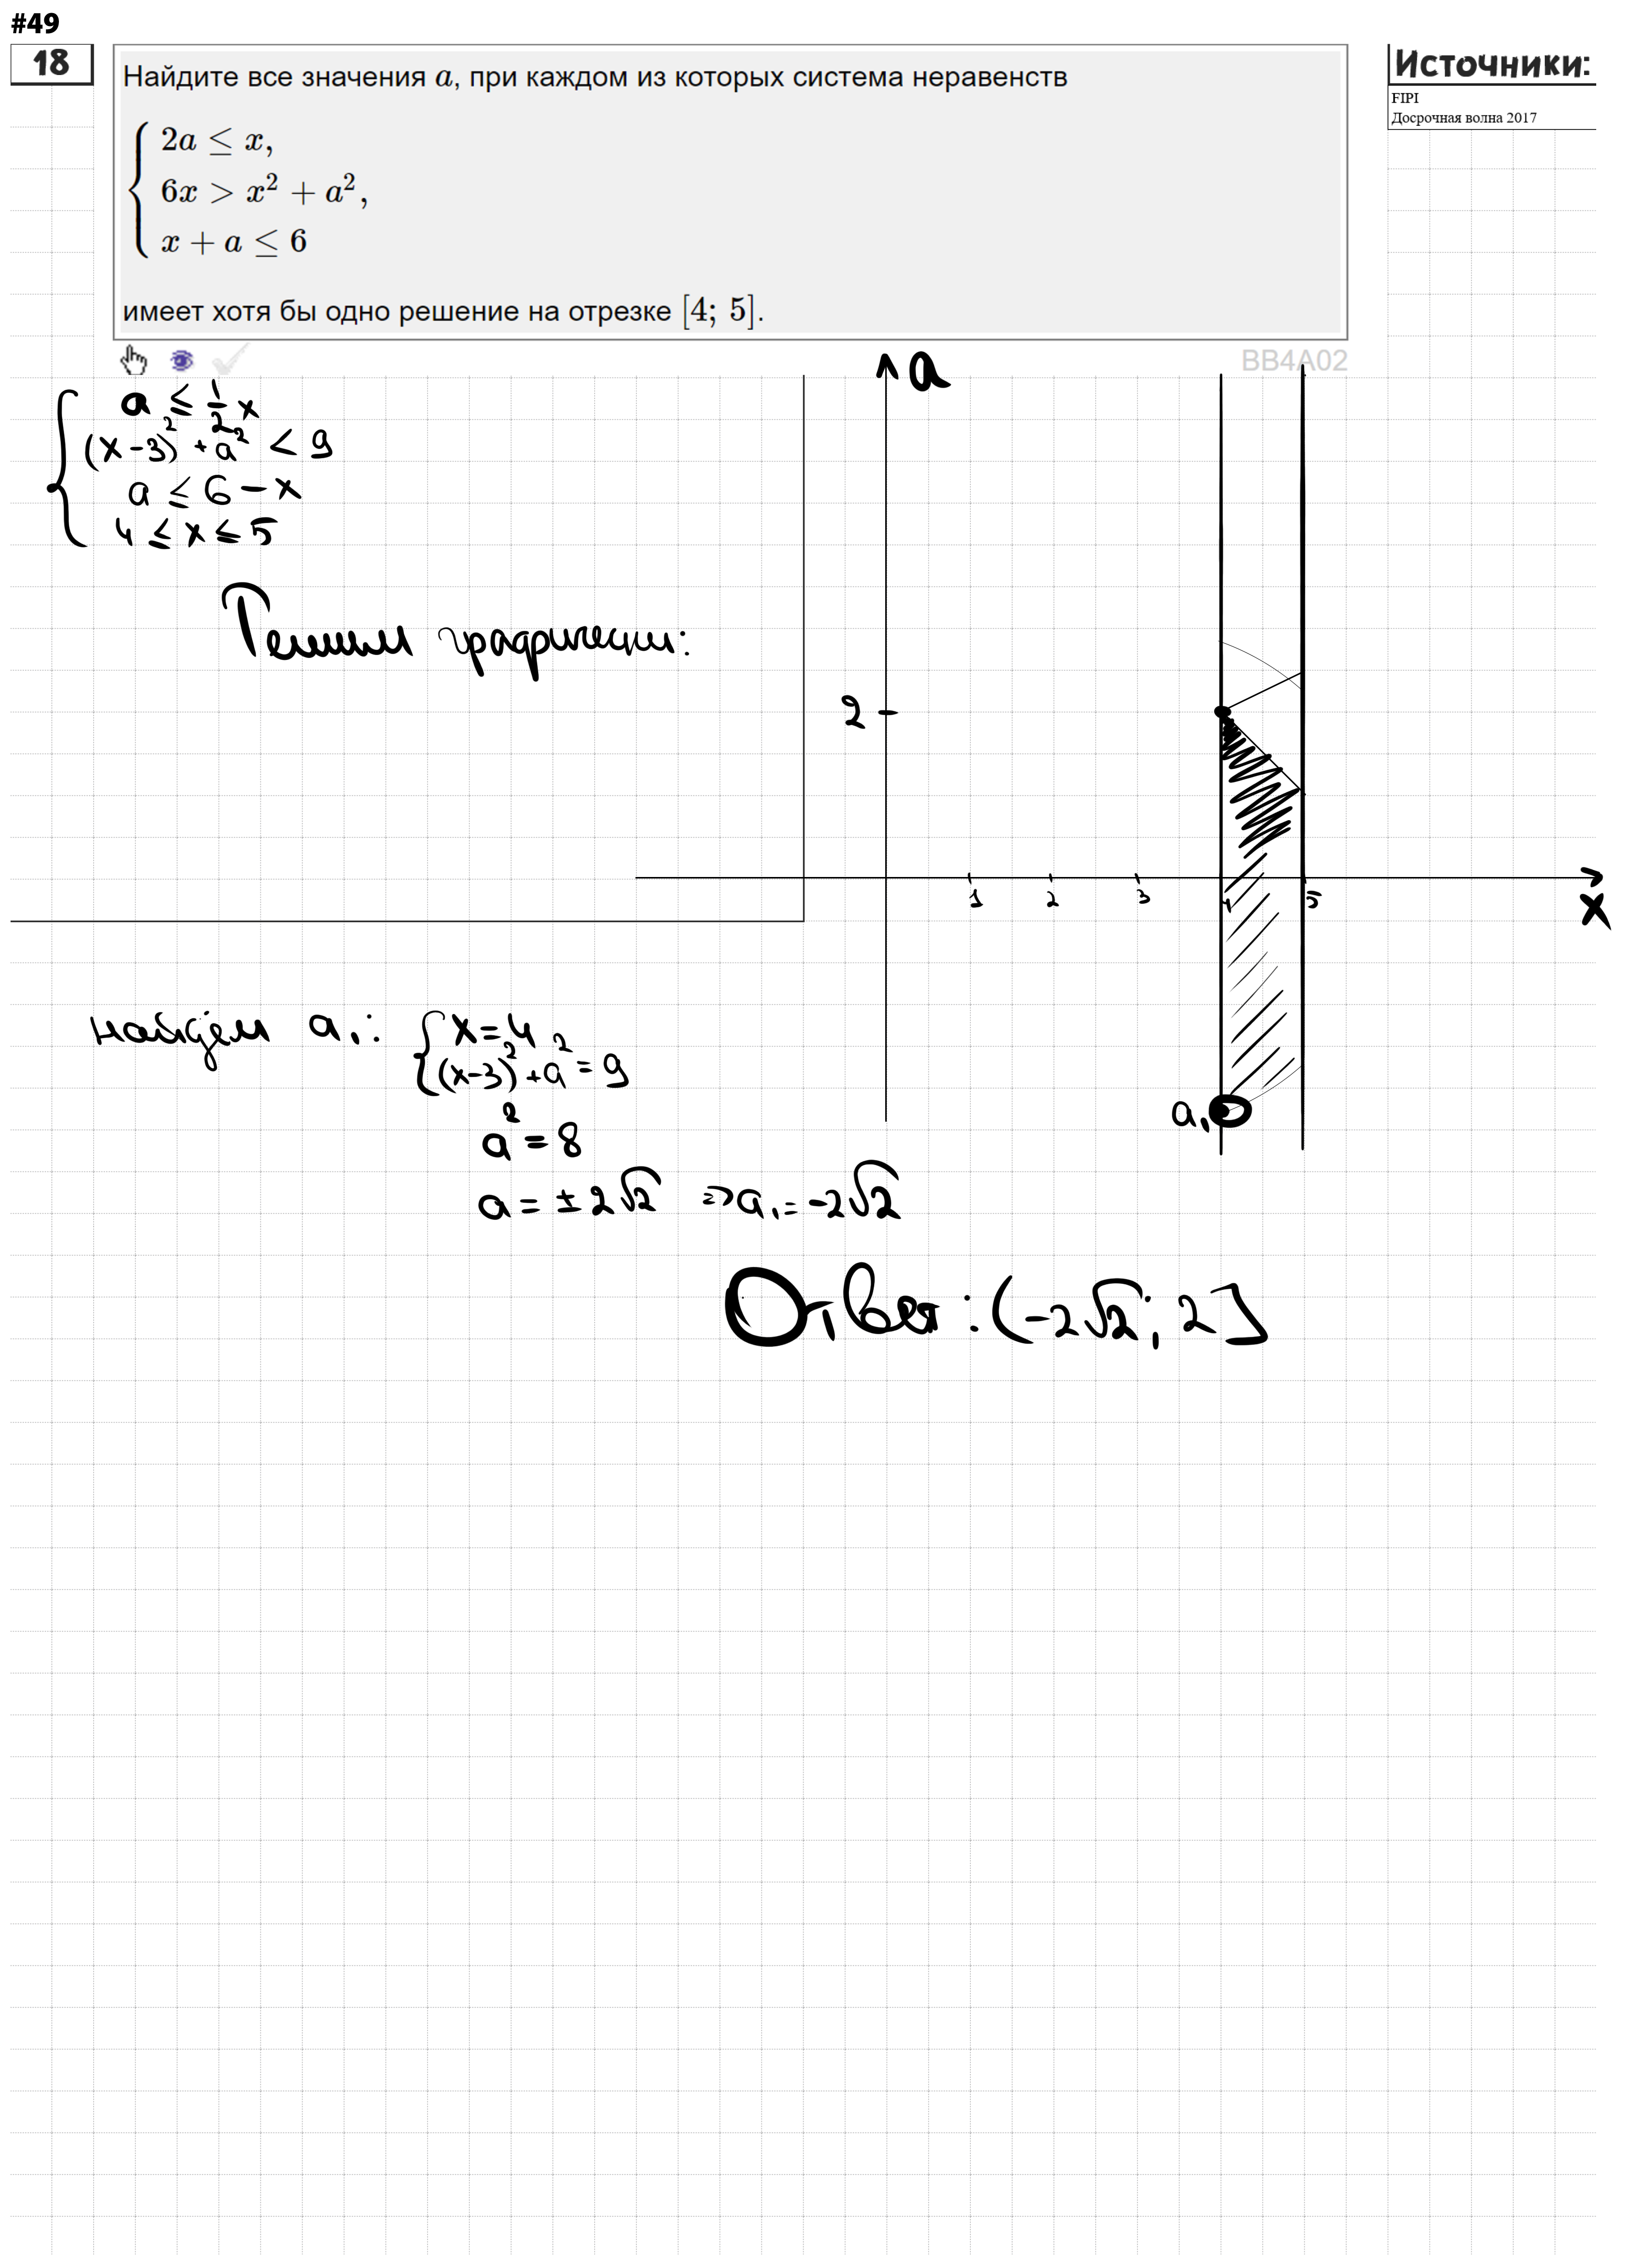 #49
18
Найдите все значения a, при каждом из которых система неравенств
2a ≤ x,
6x > x² + a²,
x + a ≤ 6
имеет хотя бы одно решение на отрезке [4; 5].
Источники:
FIPI
Досрочная волна 2017
BB4A02
a ≤ 1/2 x
(x-3)² + a² < 9
a ≤ 6 - x
4 ≤ x ≤ 5
Решим графически:
a
2
1 2 3 4 5
x
a₁
найдём a₁:
x=4
(x-3)² + a² = 9
a² = 8
a = ± 2√2 ⇒ a₁ = -2√2
Ответ: (-2√2; 2]